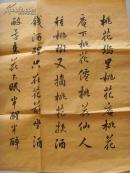 桃花塢里桃花庵桃花
庵下桃花仙桃花仙人
種桃樹又摘桃花換酒
錢酒醒只在花前坐酒
醉還來花下眠半醒半醉